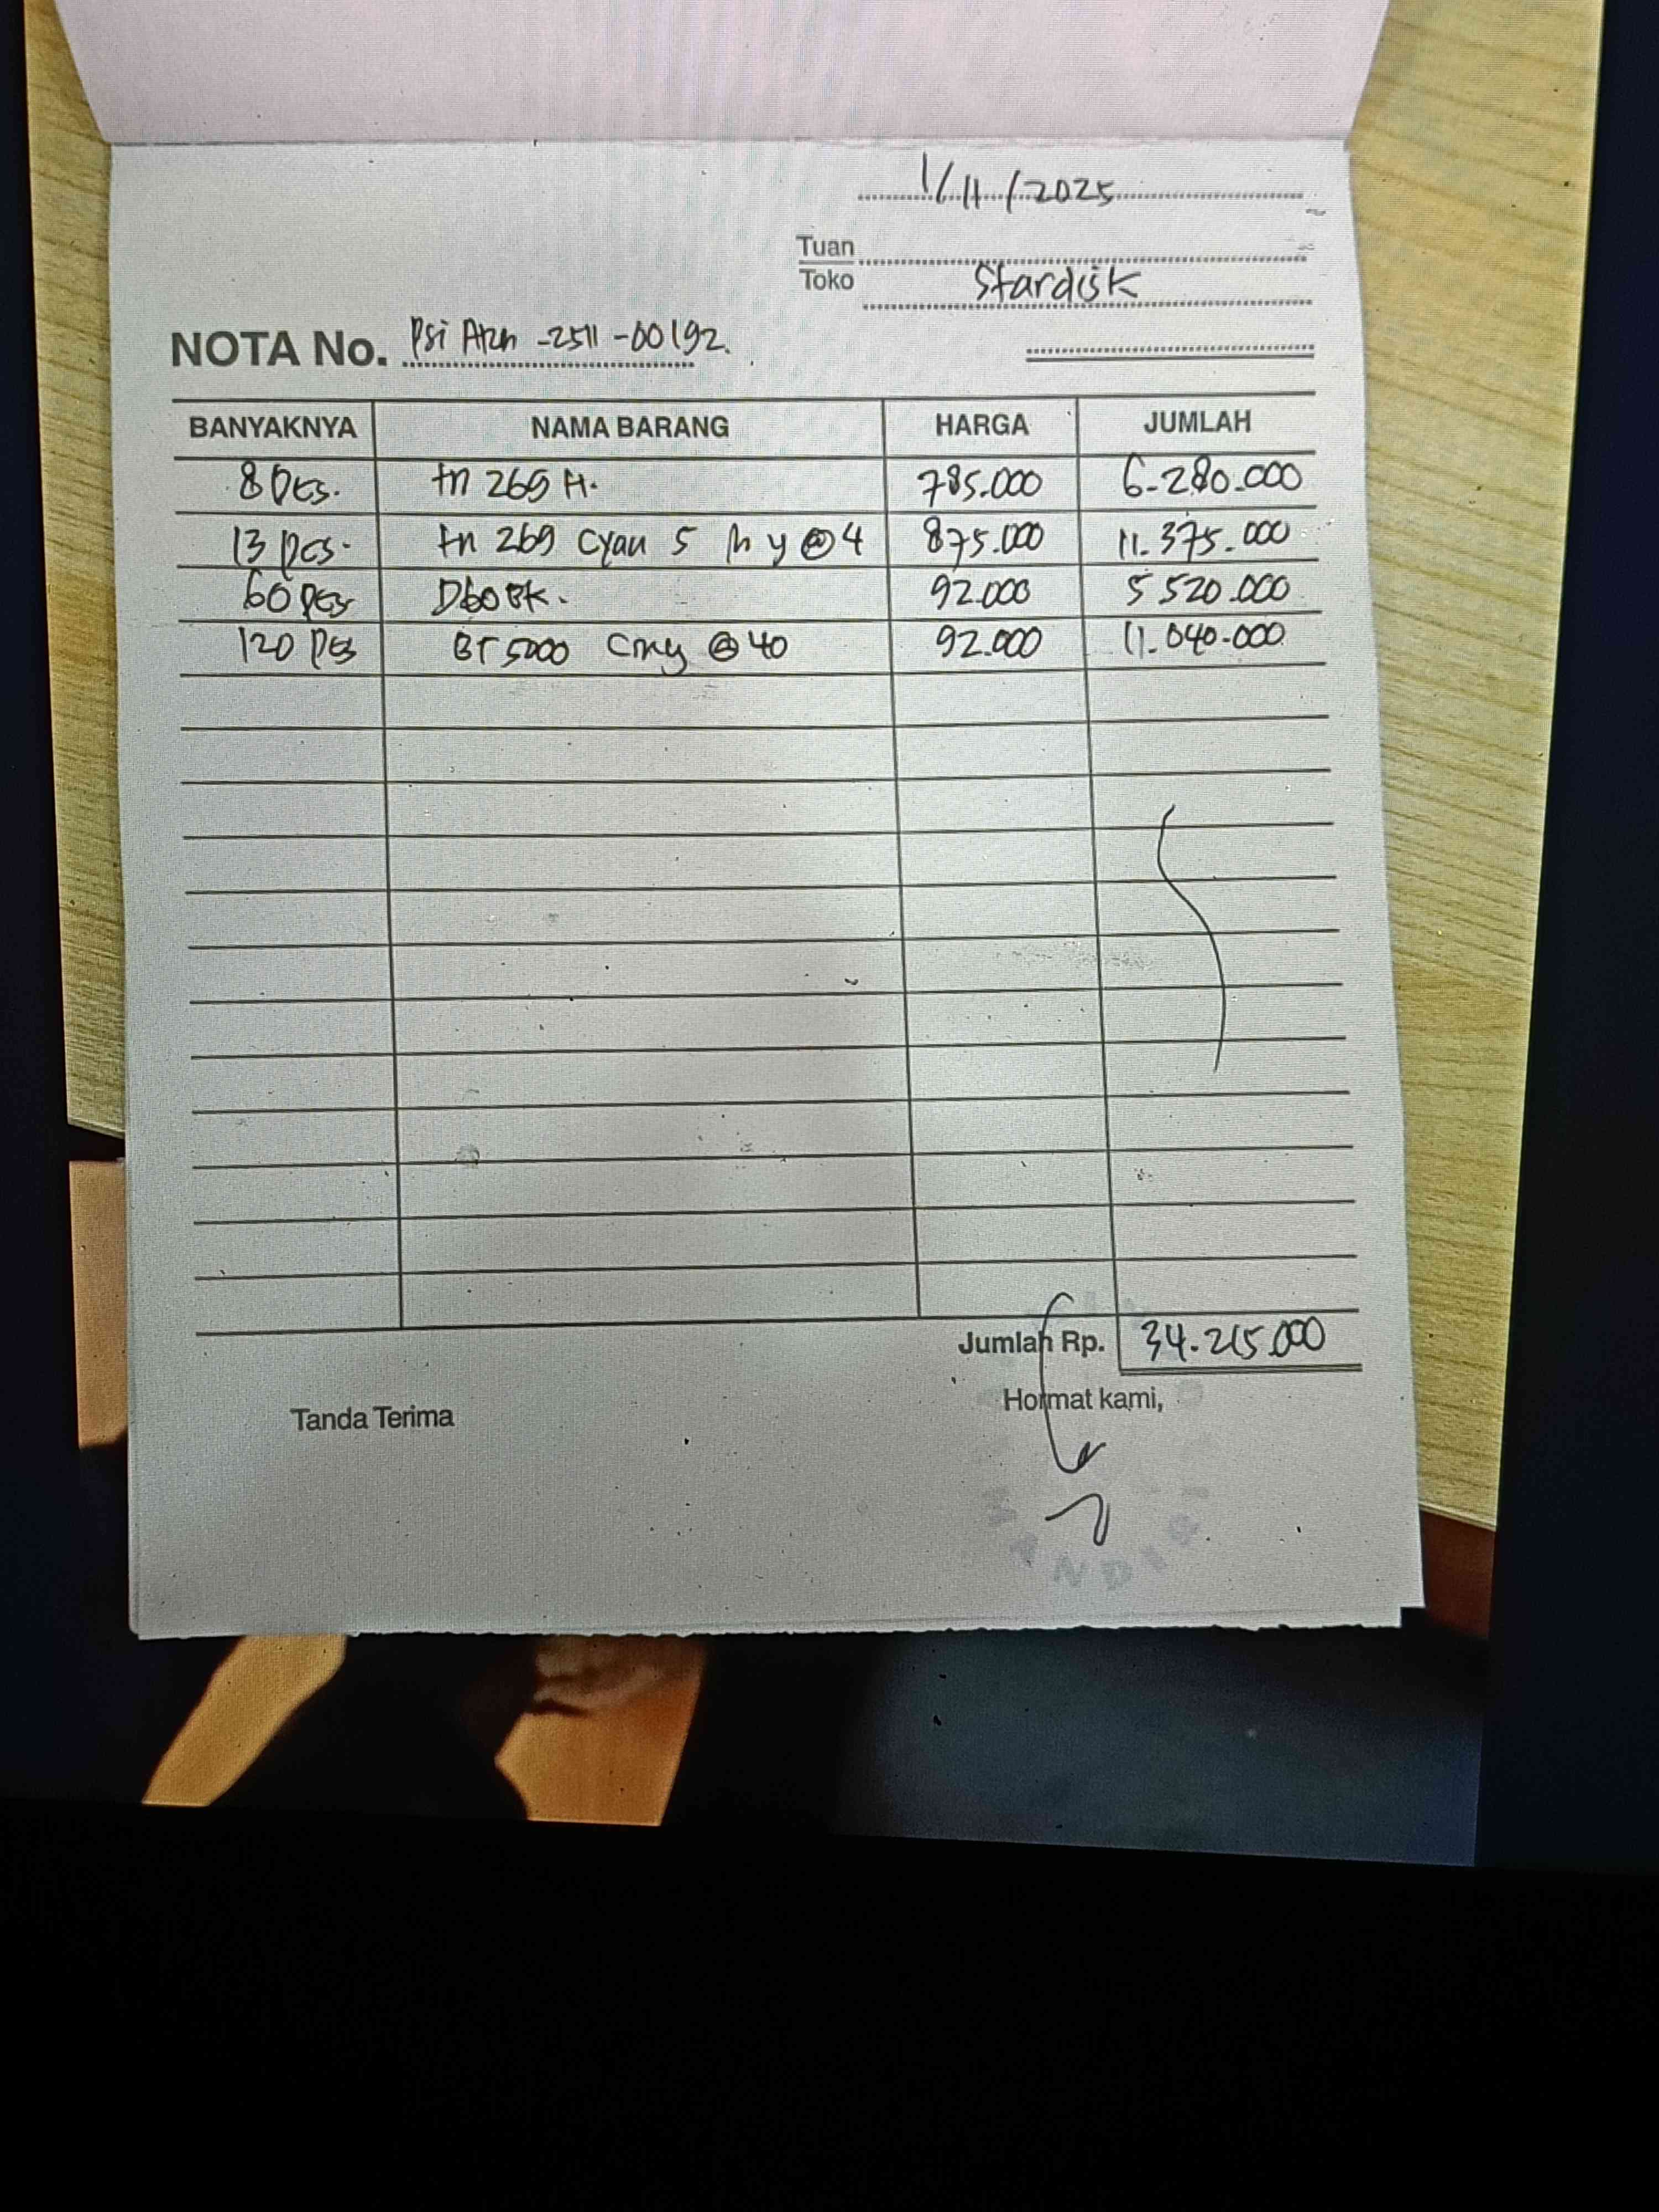 1/11/2025
Tuan
Toko Stardisk
NOTA No. Psi Atzn -2511 -00192.
BANYAKNYA NAMA BARANG HARGA JUMLAH
8 Pcs. tn 269 H. 785.000 6.280.000
13 pcs. tn 269 Cyan 5 m y @4 875.000 11.375.000
60 Pcs D60BK. 92.000 5 520.000
120 Pcs BT 5000 Cmy @ 40 92.000 11.040.000
Jumlah Rp. 34.215.000
Tanda Terima Hormat kami,
MANDIRI